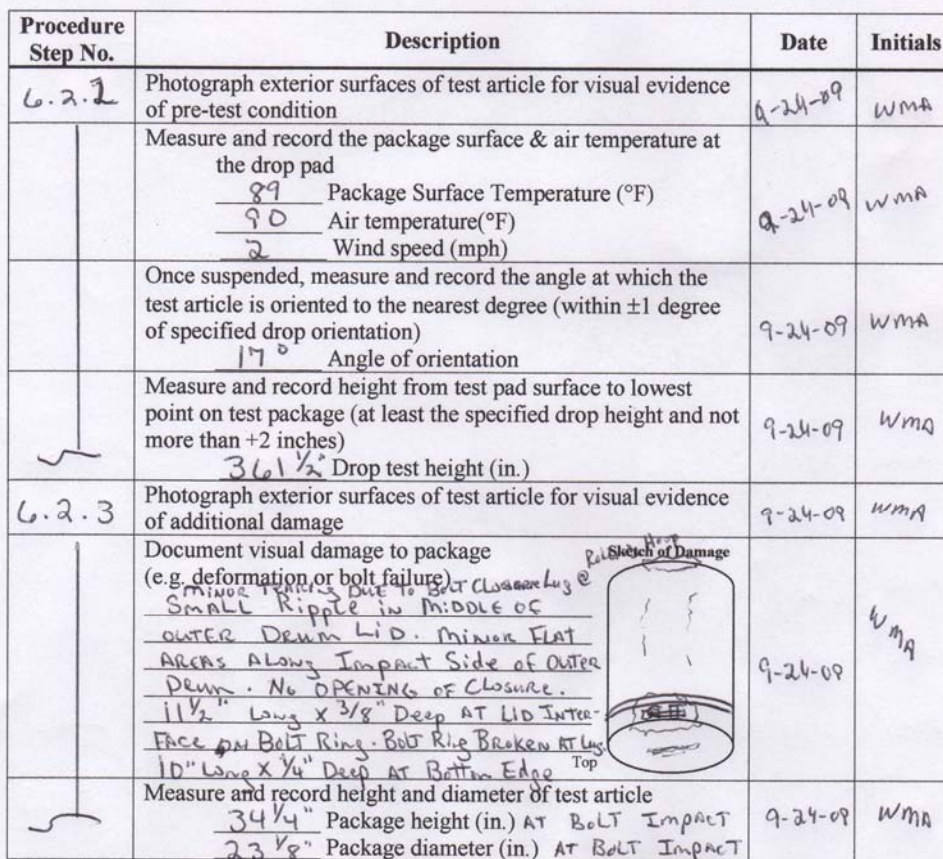 Procedure Step No. Description Date Initials
6.2.2 Photograph exterior surfaces of test article for visual evidence
of pre-test condition 9-24-09 WMA
Measure and record the package surface & air temperature at
the drop pad
89 Package Surface Temperature (°F)
90 Air temperature(°F) 9-24-09 WMA
2 Wind speed (mph)
Once suspended, measure and record the angle at which the
test article is oriented to the nearest degree (within ±1 degree
of specified drop orientation) 9-24-09 WMA
17° Angle of orientation
Measure and record height from test pad surface to lowest
point on test package (at least the specified drop height and not
more than +2 inches) 9-24-09 WMA
361 1/2" Drop test height (in.)
6.2.3 Photograph exterior surfaces of test article for visual evidence
of additional damage 9-24-09 WMA
Document visual damage to package Sketch of Damage
(e.g. deformation or bolt failure)
MINOR TEARING DUE TO BOLT CLOSURE Lug @ Rolling Hoop
SMALL Ripple in MIDDLE OF
OUTER DRUM LID. MINOR FLAT
AREAS ALONG Impact Side of OUTER
DRUM. NO OPENING OF CLOSURE. 9-24-09 WMA
11 1/2" Long X 3/8" Deep AT LID INTER-
FACE ON BOLT RING. Bolt Ring BROKEN AT Lug.
10" Long X 1/4" Deep AT Bottom Edge Top
Measure and record height and diameter of test article
34 1/4" Package height (in.) AT BOLT IMPACT 9-24-09 WMA
23 1/8" Package diameter (in.) AT BOLT IMPACT